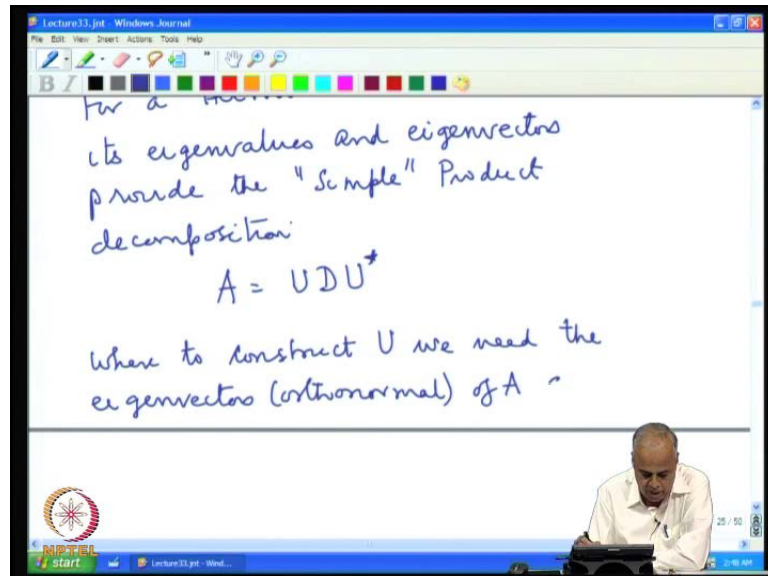 Lecture33.jnt - Windows Journal
File Edit View Insert Actions Tools Help
B I
For a
its eigenvalues and eigenvectors
provide the "Simple" Product
decomposition
A = UDU*
where to construct U we need the
eigenvectors (orthonormal) of A
25 / 50
NPTEL
start
Lecture33.jnt - Wind...
2:48 AM